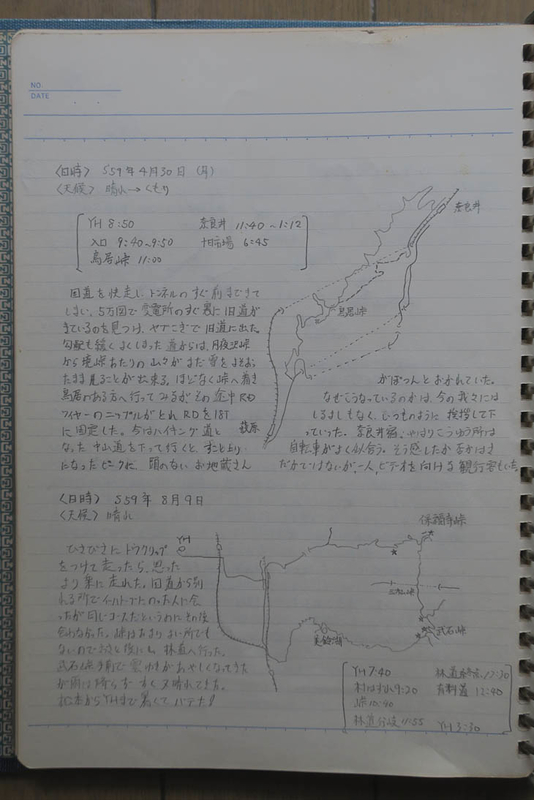 NO.
DATE
〈日時〉 S59年4月30日（月）
〈天候〉 晴れ→くもり
YH 8:50 奈良井 11:40~1:12
入口 9:40~9:50 旧市場 6:45
鳥居峠 11:00
奈良井
鳥居峠
薮原
国道を快走し、トンネルのすぐ前まできて
しまい、5万図で変電所のすぐ裏に旧道が
きているのを見つけ、ヤブこぎで旧道に出た。
勾配も緩くよくしまった道からは、月夜沢峠
から境峠あたりの山々がまだ雪をよそおっ
たまま見ることが出来る。ほどなく峠へ着き
鳥居のある方へ行ってみるがその途中RD
ワイヤーのニップルがとれRDを18T
に固定した。今はハイキング道と
なった中山道を下って行くと、
になった 頭のないお地蔵さん
がぽつんとおかれていた。
なぜこうなっているのかは、今の我々には
しるよしもなく、いつものように挨拶して下
っていった。奈良井宿、やはりこうゆう所は
自転車がよく似合う。そう感じたか
だかではないが、一人、ビデオを向ける観光客もいた。
〈日時〉 S59年 8月9日
〈天候〉 晴れ
YH
保福寺峠
武石峠
美鈴湖
ひさびさにトウクリップ
をつけて走ったら、思った
より楽に走れた。旧道から別
れる所で
ったが同じコースだというのにその後
会わなかった。峠はあまりよい所でも
ないので 林道へ行った。
武石峠手前で雲ゆきがあやしくなってきた
が雨は降らず すぐ又晴れてきた。
YHまで暑くてバテタ!
YH 7:40 林道終点 12:30
村はずれ 9:20 有料道 12:40
峠 10:40
林道分岐 11:55 YH 3:30